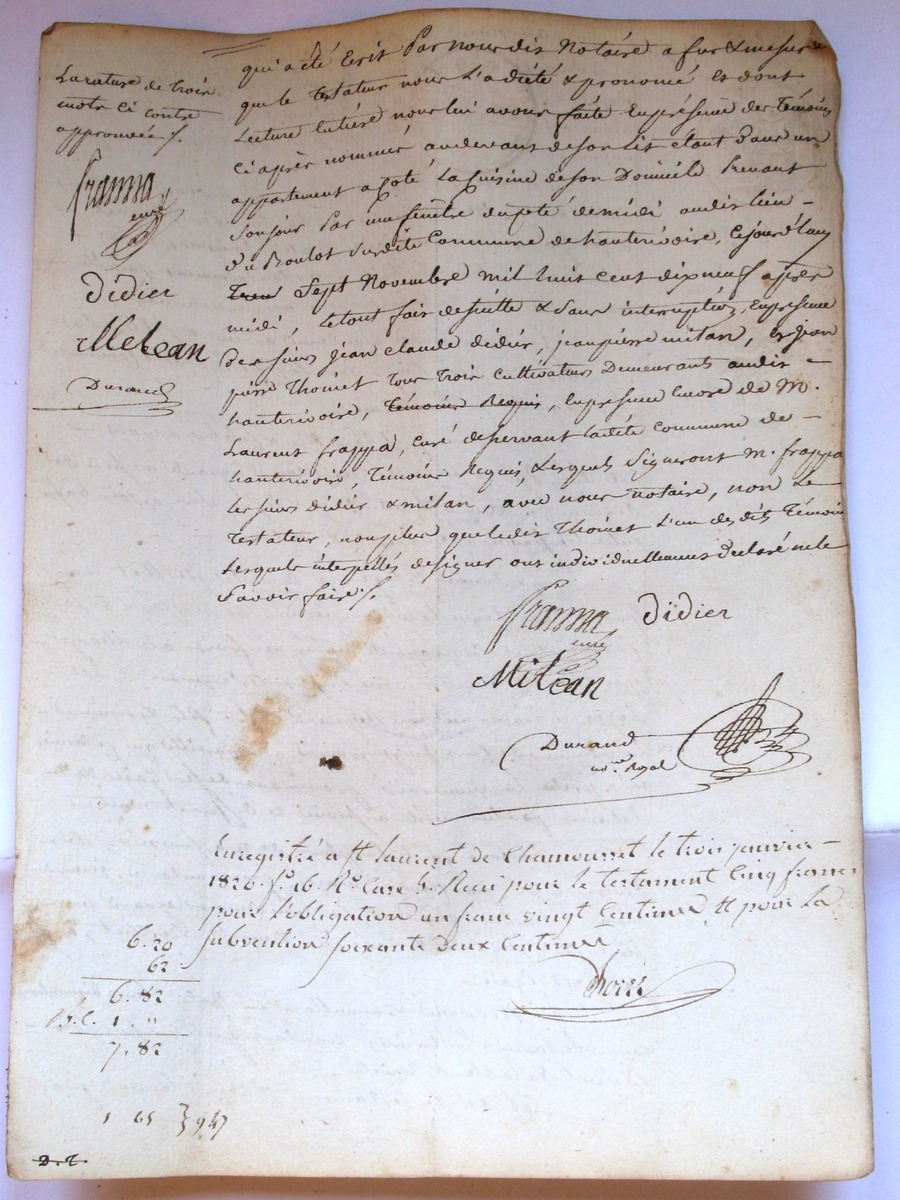 qui a été Ecrit Par nous dit Notaire a fur & mesure
que le testateur nous L'a dicté & prononcé Et dont
Lecture Entière nous lui avons faite En présence des Témoins
Ci après nommés au devant de son Lit etant dans un
appartement a Coté La Cuisine de son Domicile Prenant
Son jour Par une fenêtre du Coté de midi audit Lieu
du Boulot Susdite Commune de hauterivoire, Cejourd'huy
Sept Novembre mil huit cent dix neuf après
midi, Letout fait de suitte & sans interruption, En présence
Des sieurs jean claude didier, jean pierre milan, & jean
pierre Thoinet Tous Trois Cultivateurs Demeurants audit
hauterivoire, Témoins Requis, En présence Encore de M.
Laurent frappa, curé desservant ladite commune de
hauterivoire, Témoins Requis, Lesquels Signeront M. frappa
Les sieurs didier & milan, avec nous notaire, non Le
Testateur, non plus que ledit Thoinet L'un des dits Témoins
Lesquels interpellés de signer ont individuellement déclaré ne le
Savoir faire ./.
La rature de trois
mots Ci contre
approuvée ./.
frappa
curé
Didier
Melean
Durand
frappa
curé
Didier
Milean
Durand
no.re Royal
Enregistré a St Laurent de Chamousset le trois janvier
1820. f.o 16. R.o Case 5. Recu pour le testament Cinq francs
pour l'obligation un franc vingt Centimes Et pour la
Subvention Soixante deux Centimes
6. 20
62
6. 82
1. "
7. 82
1 65 } 947